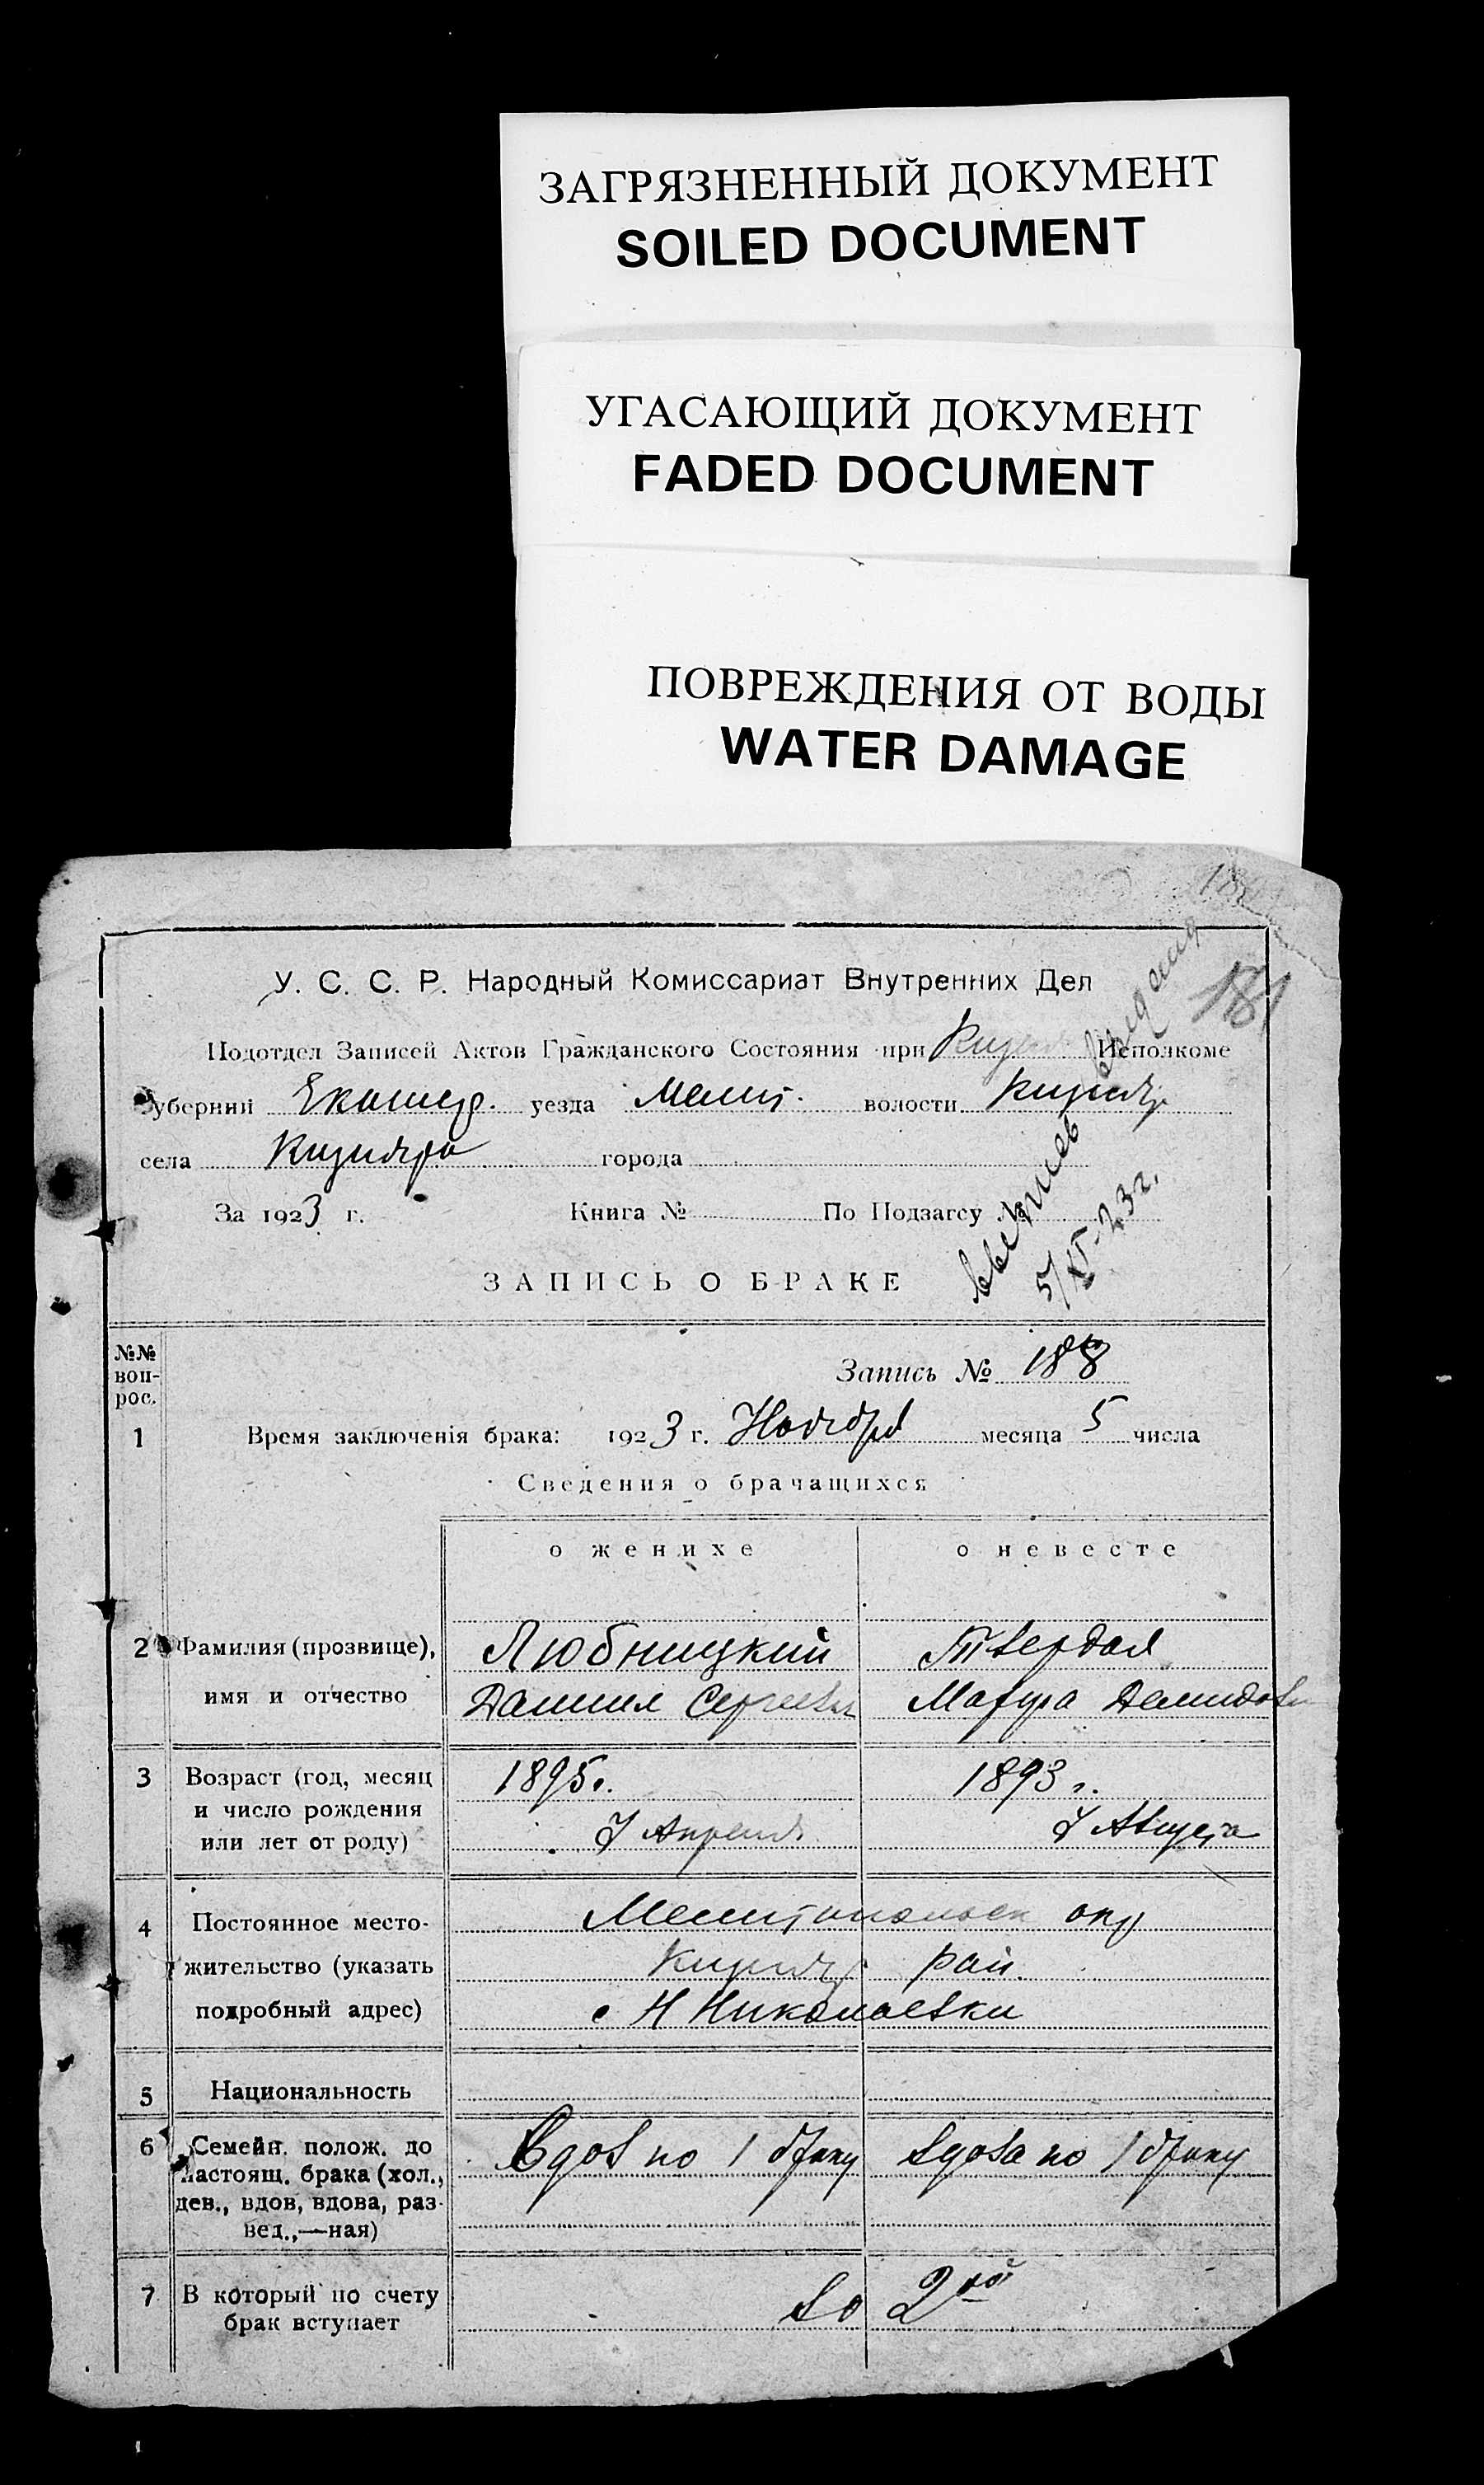 ЗАГРЯЗНЕННЫЙ ДОКУМЕНТ
SOILED DOCUMENT
УГАСАЮЩИЙ ДОКУМЕНТ
FADED DOCUMENT
ПОВРЕЖДЕНИЯ ОТ ВОДЫ
WATER DAMAGE
181
У. С. С. Р. Народный Комиссариат Внутренних Дел
Подотдел Записей Актов Гражданского Состояния при Исполкоме
губернии Екатер. уезда Мелит. волости Кизияр
села Кизияра города
За 1923 г. Книга № По Подзагсу №
выпись выдана
5/XI-23г.
ЗАПИСЬ О БРАКЕ
№№ воп-
рос.
Запись № 188
1 Время заключенія брака: 1923 г. Ноября месяца 5 числа
Сведения о брачащихся
о женихе о невесте
2 Фамилия (прозвище), Любницкий Твердая
имя и отчество Даниил Сергеев Марфа Демидов
3 Возраст (год, месяц 1895г. 1893г.
и число рождения
или лет от роду) Апреля Августа
4 Постоянное место- Мелитопольск окр
жительство (указать Кизияр рай.
подробный адрес) с Н Николаевки
5 Национальность
6 Семейн. полож. до Вдов по 1 браку вдова по 1 браку
настоящ. брака (хол.,
дев., вдов, вдова, раз-
вед.,—ная)
7 В который по счету во 2ой
брак вступает